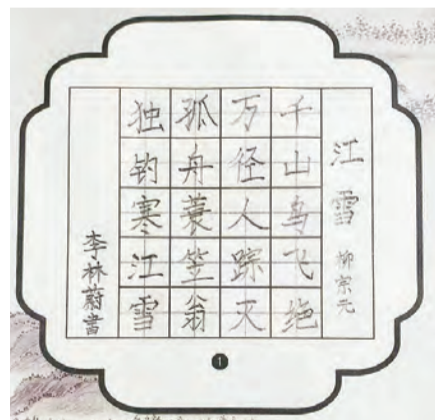 江雪 柳宗元
千山鸟飞绝
万径人踪灭
孤舟蓑笠翁
独钓寒江雪
李林蔚書
1